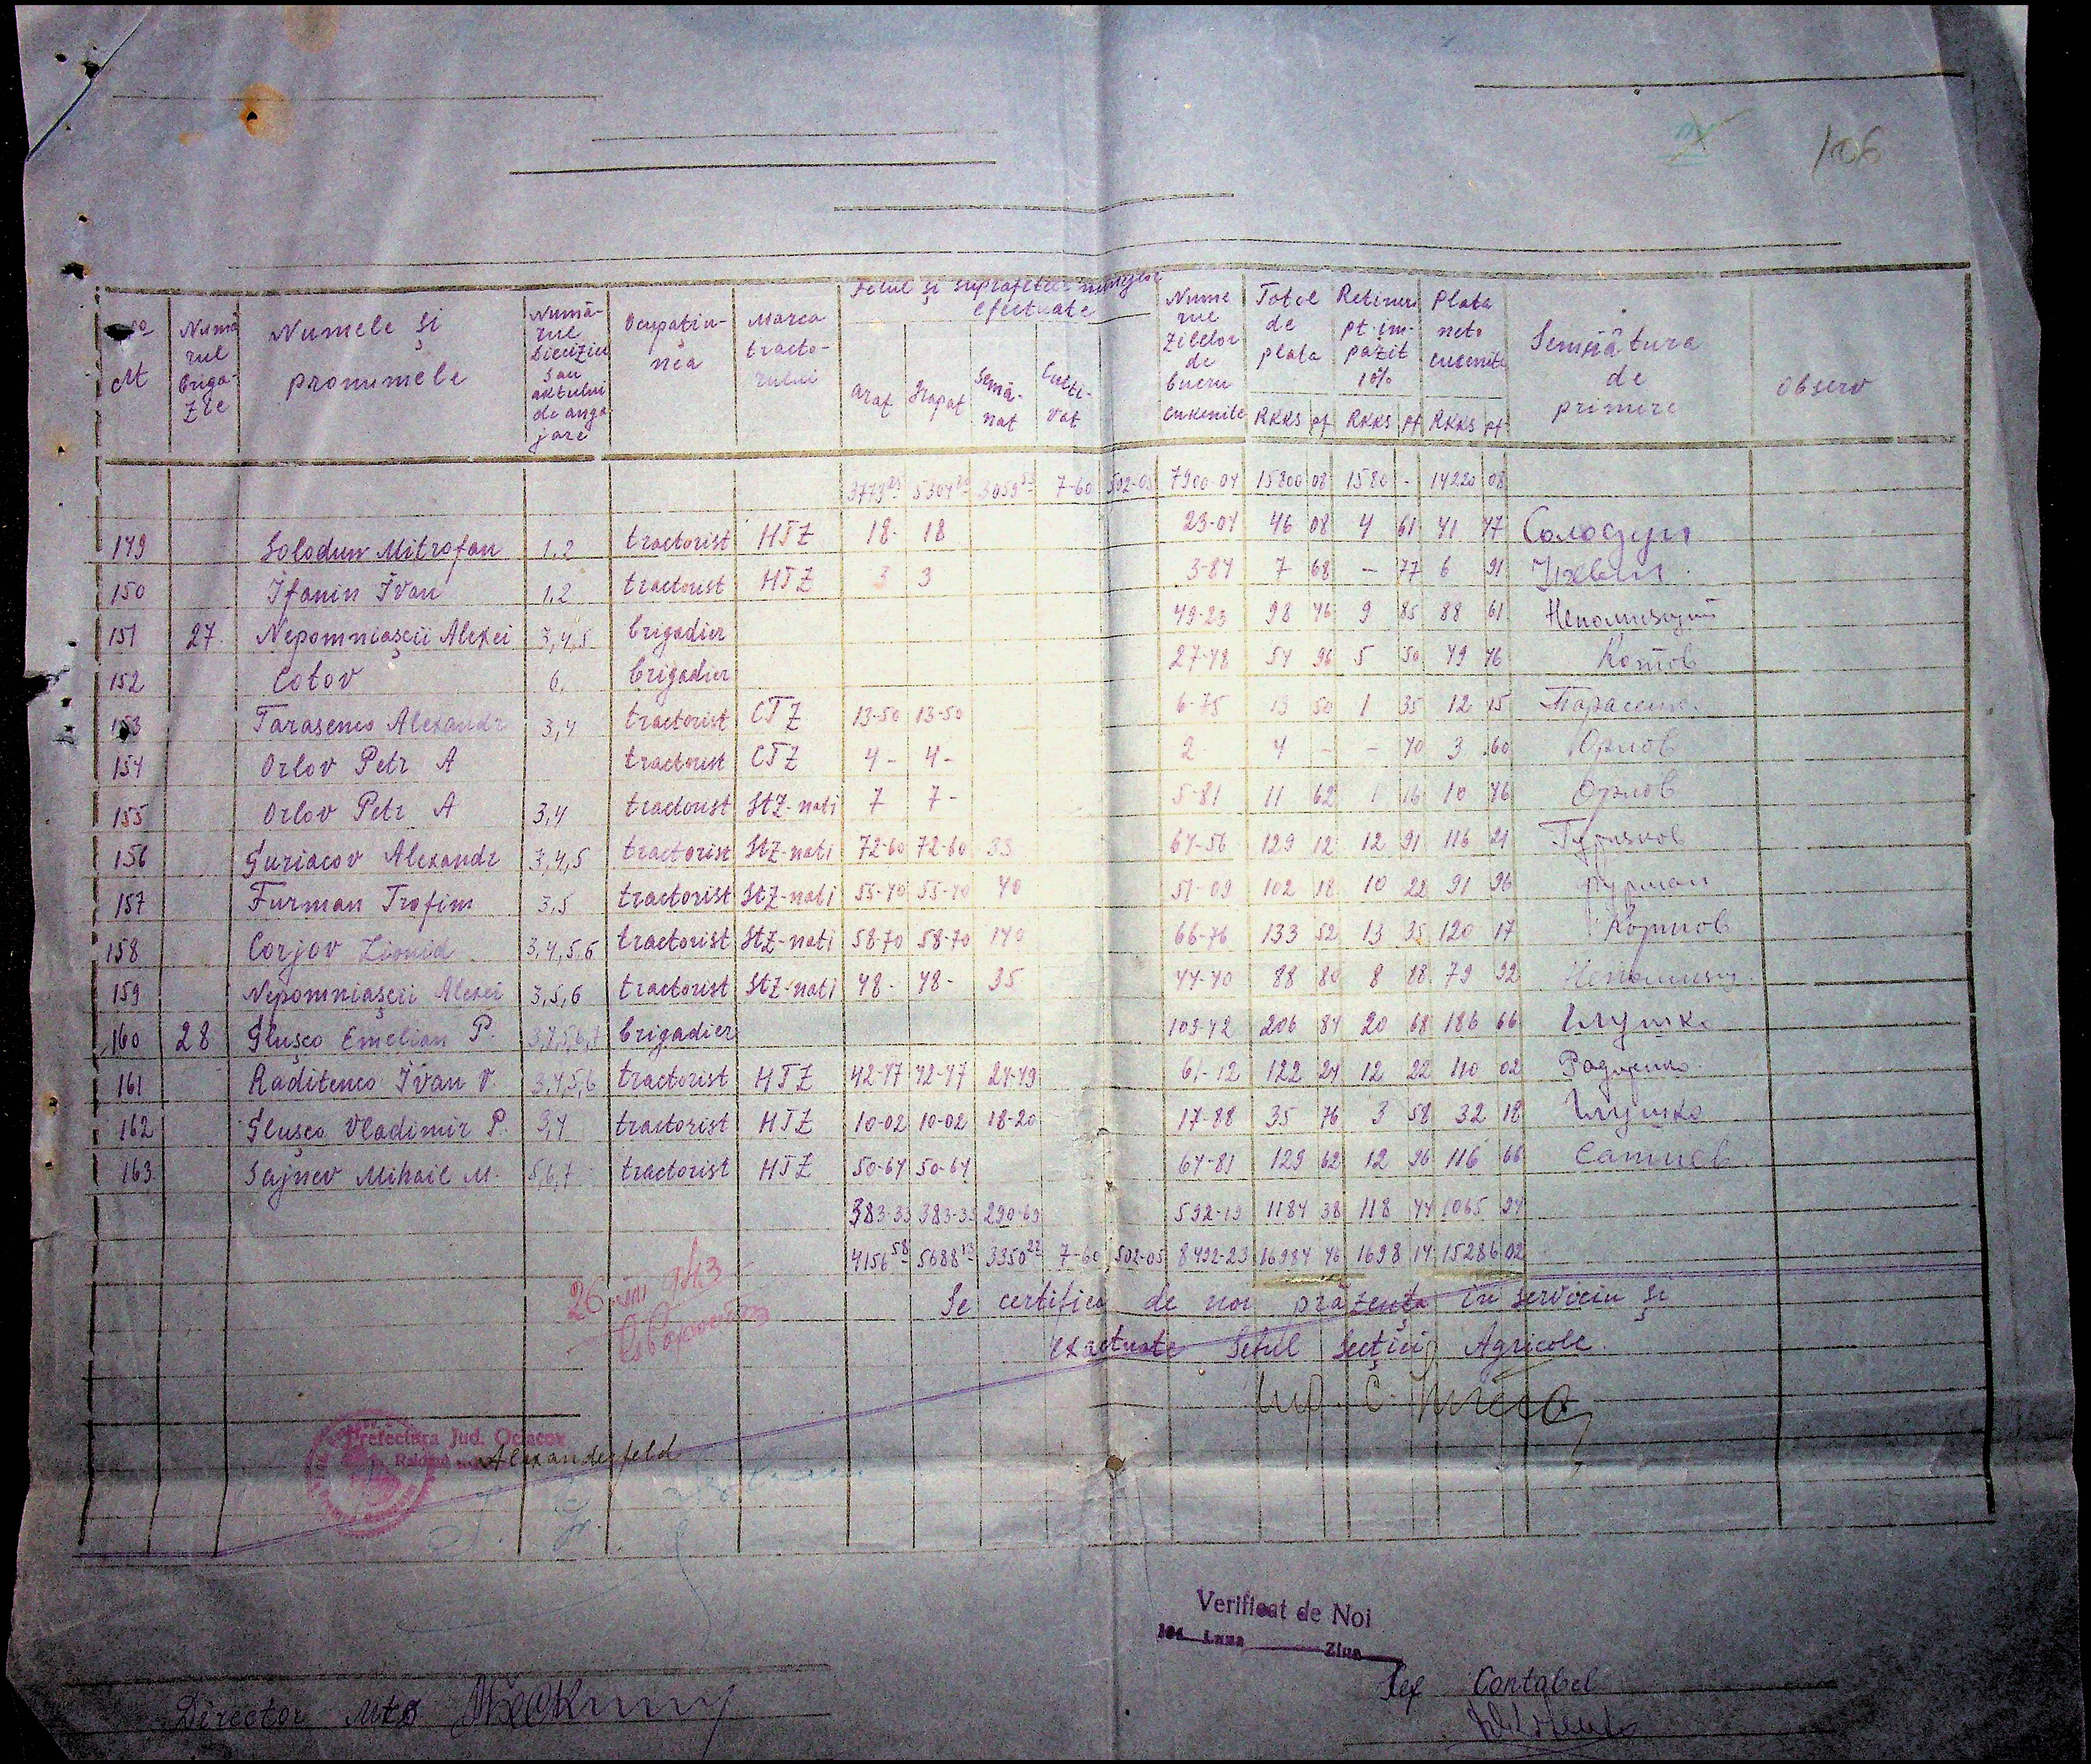 106
Felul și suprafetele muncilor efectuate
No Ct | Numărul brigăzile | Numele și pronumele | Numărul diviziei sau aktului de angajare | Ocupațiunea | Marca tractorului | arat | grapat | Semănat | Cultivat | Numerul zilelor de lucru cuvenite | Total de plata RKKS pf | Retineri pt. impozit 10% RKKS pf | Plata neto cuvenite RKKS pf | Semnătura de primire | Observ
5304 20 | 7-60 | 502-05 | 7900-04 | 15800 08 | 1580 - | 14220 08
149 | Solodun Mitrofan | 1,2 | tractorist | HTZ | 18- | 18 | 23-04 | 46 08 | 4 61 | 41 47 | Солодун
150 | Ifanin Ivan | 1,2 | tractorist | HTZ | 3 | 3 | 3-84 | 7 68 | - 77 | 6 91
151 | 27 | Nepomniașcii Alexei | 3,4,5 | brigadier | 49-23 | 98 46 | 9 85 | 88 61 | Непомнящий
152 | Cotov | 6, | brigadier | 27-48 | 54 96 | 5 50 | 49 46 | Котов
153 | Tarasenco Alexandr | 3,4 | tractorist | CTZ | 13-50 | 13-50 | 6-75 | 13 50 | 1 35 | 12 15 | Тарасенко
154 | Orlov Petr A | tractorist | CTZ | 4- | 4- | 2 | 4 - | - 40 | 3 60 | Орлов
155 | Orlov Petr A | 3,4 | tractorist | StZ-nati | 7 | 7- | 5-81 | 11 62 | 1 16 | 10 46 | Орлов
156 | Guriacov Alexandr | 3,4,5 | tractorist | StZ-nati | 72-60 | 72-60 | 33 | 64-56 | 129 12 | 12 91 | 116 21 | Гуряков
157 | Furman Trofim | 3,5 | tractorist | StZ-nati | 55-40 | 55-40 | 40 | 51-09 | 102 18 | 10 22 | 91 96 | Фурман
158 | Corjov Lionid | 3,4,5,6 | tractorist | StZ-nati | 58-70 | 58-70 | 140 | 66-76 | 133 52 | 13 35 | 120 17
159 | Nepomniașcii Alexei | 3,5,6 | tractorist | StZ-nati | 48- | 48- | 35 | 44-40 | 88 80 | 8 88 | 79 92 | Непомнящ
160 | 28 | Glușco Emelian P. | brigadier | 103-42 | 206 84 | 20 68 | 186 66 | Глушко
161 | Raditenco Ivan V. | 3,4,5,6 | tractorist | HTZ | 42-47 | 42-47 | 24-49 | 61-12 | 122 24 | 12 22 | 110 02 | Радченко
162 | Glușco Vladimir P. | 3,4 | tractorist | HTZ | 10-02 | 10-02 | 18-20 | 17-88 | 35 76 | 3 58 | 32 18 | Глушко
163 | Sajnev Mihail M. | 5,6,7 | tractorist | HTZ | 50-64 | 50-64 | 64-81 | 129 62 | 12 96 | 116 66
383-33 | 383-33 | 290-69 | 592-19 | 1184 38 | 118 44 | 1065 94
4156 58 | 5688 13 | 3350 22 | 7-60 | 502-05 | 8492-23 | 16984 46 | 1698 14 | 15286 02
26 VIII 943
Se certifica de noi prăzența in serviciu și
exactuate Sehul Secției Agricole.
Prefectura Jud. Oceacov
Raionul Alexanderfeld
Verificat de Noi
194 Luna Ziua
Director Mts
Șef Contabel